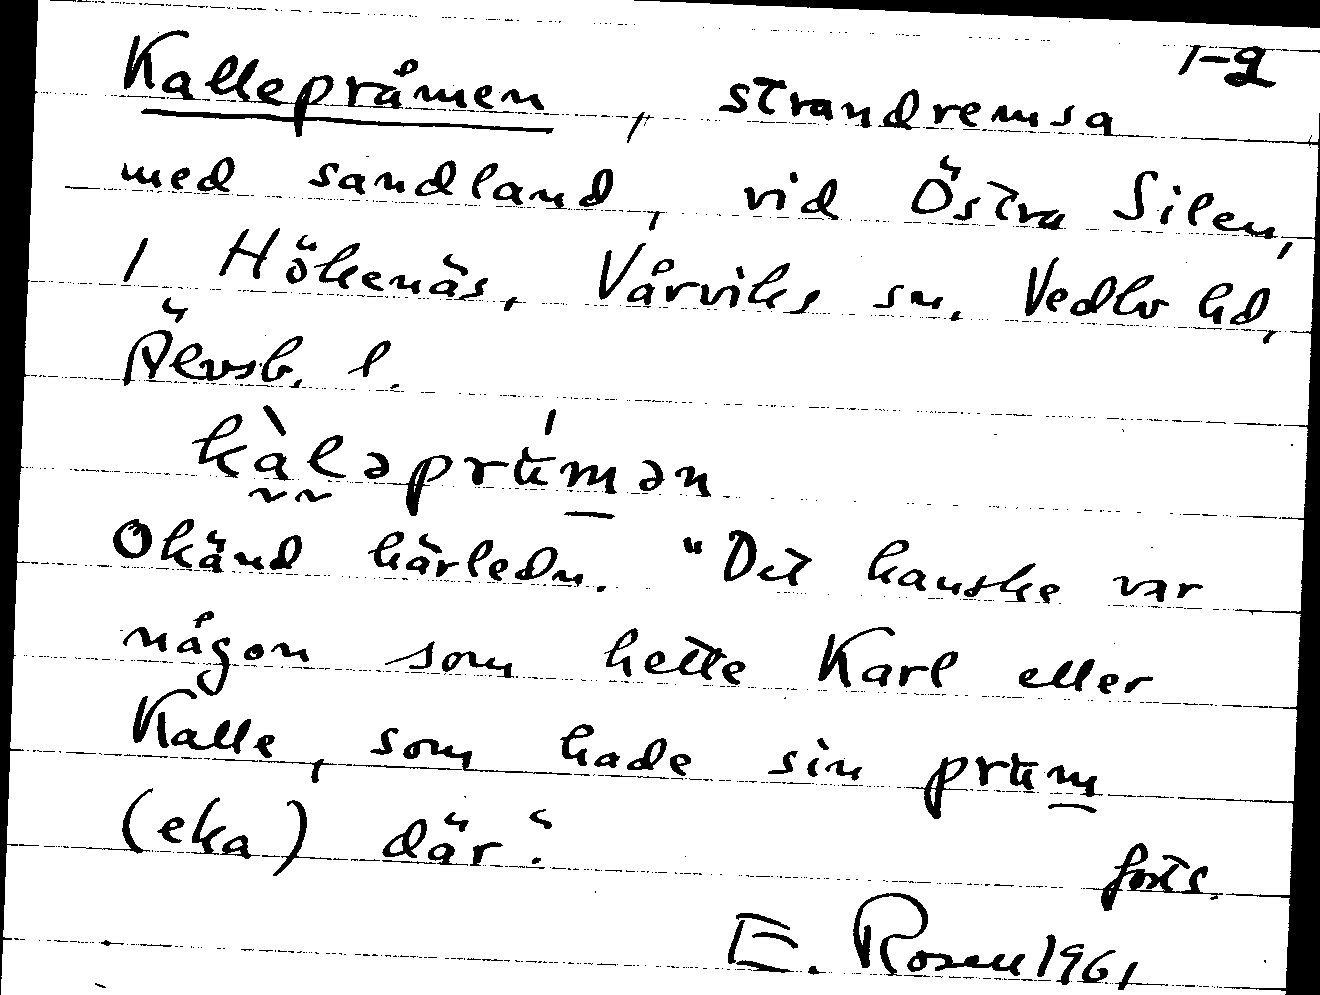 1-2
Kallepråmen, strandremsa
med sandland, vid Östra Silen,
i Hökenäs, Vårviks sn. Vedbo hd,
Älvsb. l.
kàləprǻmən
Okänd härledn. "Det kanske var
någon som hette Karl eller
Kalle, som hade sin pråm
(eka) där."
forts.
E. Rosen 1961